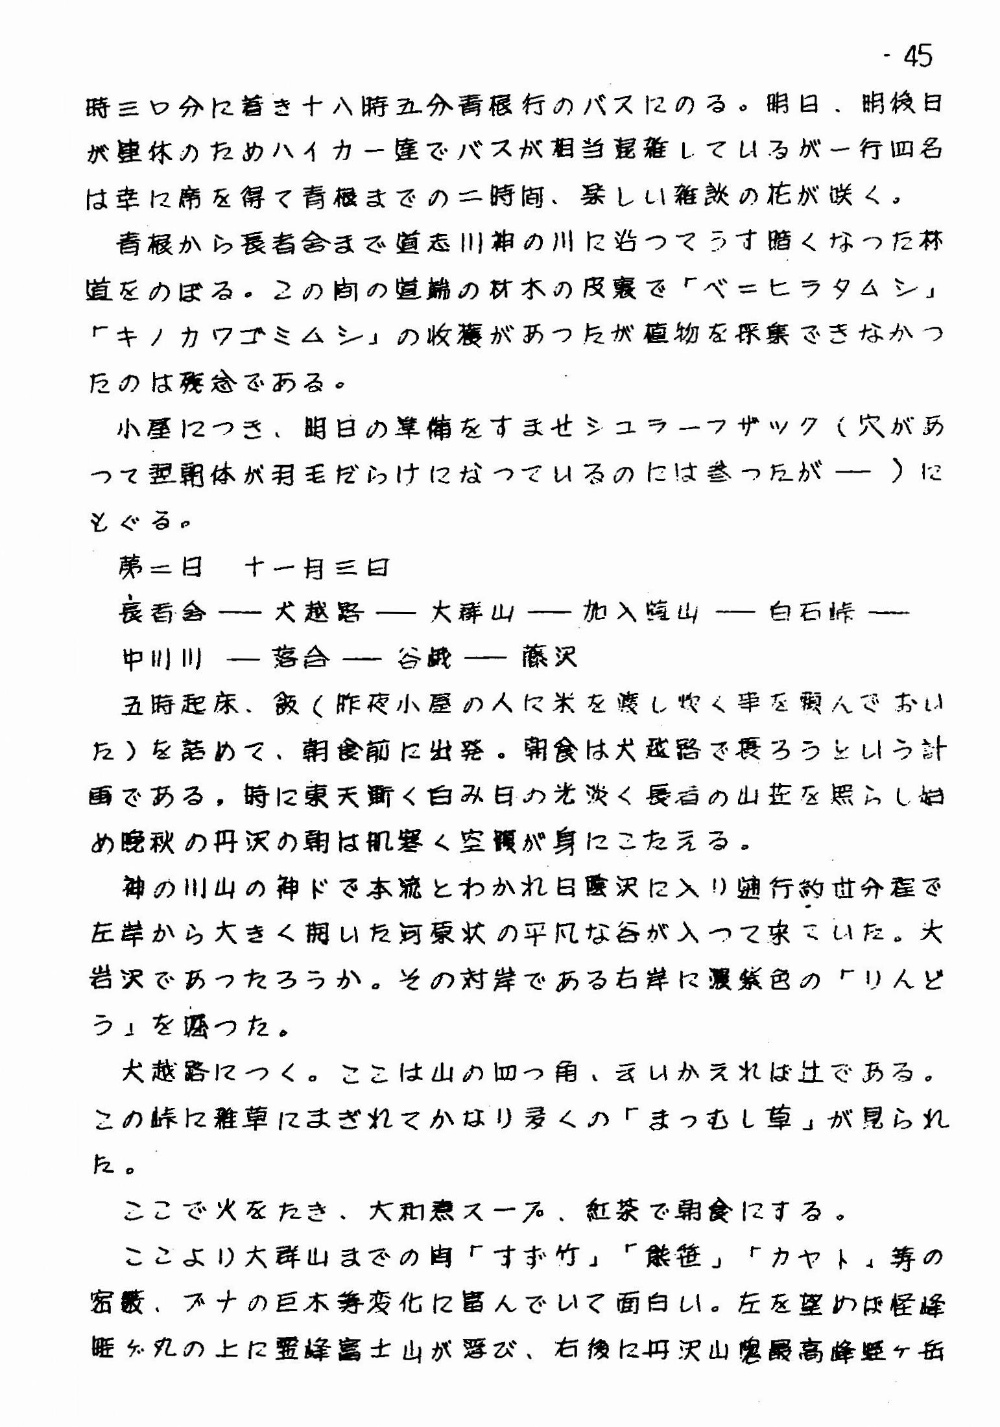 - 45
時三〇分に着き十八時五分青根行のバスにのる。明日、明後日
が連休のためハイカー達でバスが相当混雑しているが一行四名
は幸に席を得て青根までの二時間、楽しい雑談の花が咲く。
青根から長者舎まで道志川神の川に沿つてうす暗くなつた林
道をのぼる。この間の道端の材木の皮裏で「ベニヒラタムシ」
「キノカワゴミムシ」の収獲があつたが植物を採集できなかつ
たのは残念である。
小屋につき、明日の準備をすませシュラーフザック(穴があ
つて翌朝体が羽毛だらけになつているのには参つたが—)に
もぐる。
第二日 十一月三日
長者舎—犬越路—大群山—加入道山—白石峠—
中川川—落合—谷峨—藤沢
五時起床、飯(昨夜小屋の人に米を渡し炊く事を頼んでおい
た)を詰めて、朝食前に出発。朝食は犬越路で摂ろうという計
画である。時に東天漸く白み日の光淡く長者の山荘を照らし始
め晩秋の丹沢の朝は肌寒く空腹が身にこたえる。
神の川山の神ドで本流とわかれ日陰沢に入り遡行約廿分程で
左岸から大きく開いた河原状の平凡な谷が入つて来ていた。大
岩沢であつたろうか。その対岸である右岸に濃紫色の「りんど
う」を掘つた。
犬越路につく。ここは山の四つ角、言いかえれば辻である。
この峠に雑草にまぎれてかなり多くの「まつむし草」が見られ
た。
ここで火をたき、大和煮スープ、紅茶で朝食にする。
ここより大群山までの間「すず竹」「熊笹」「カヤト」等の
密叢、ブナの巨木等変化に富んでいて面白い。左を望めば怪峰
畦ヶ丸の上に霊峰富士山が浮び、右後に丹沢山塊最高峰蛭ヶ岳